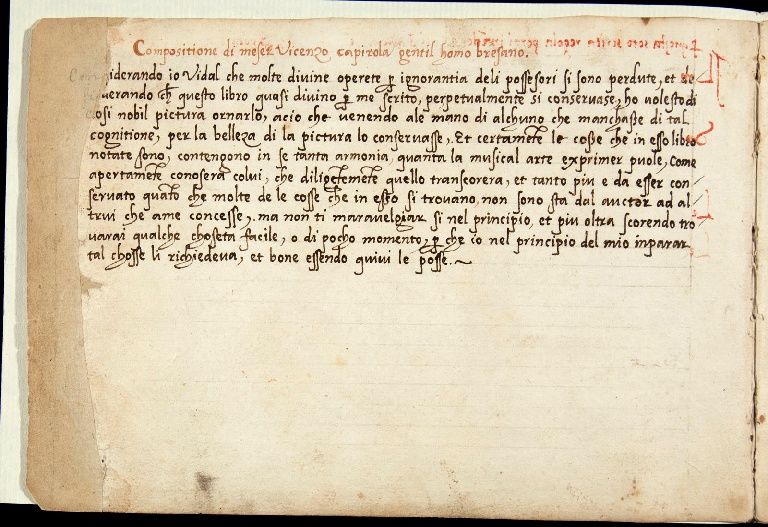 Compositione di meser Vicenzo Capirola gentil homo bresano.
Considerando io Vidal che molte divine operete p ignorantia deli possesori si sono perdute, et de
siderando ch questo libro quasi divino p me scrito, perpetualmente si conservase, ho volesto di
cosi nobil pictura ornarlo, acio che venendo ale mano di alchuno che manchasse di tal
cognitione, per la belleza di la pictura lo conservasse, Et certamete le cosse che in esso libro
notate sono, contengono in se tanta armonia, quanta la musical arte exprimer puole, Come
apertamete conosera colui, che diligetemete quello transcorera, et tanto piu e da esser con
servato quato che molte de le cosse che in esto si trovano, non sono sta dal auctor ad al
trui che ame concesse, ma non ti maravelgiar si nel principio, et piu oltra scorendo tro
varai qualche choseta facile, o di pocho momento, p che io nel principio del mio inparar
tal chosse li richiedeva, et bone essendo quivi le posse.~